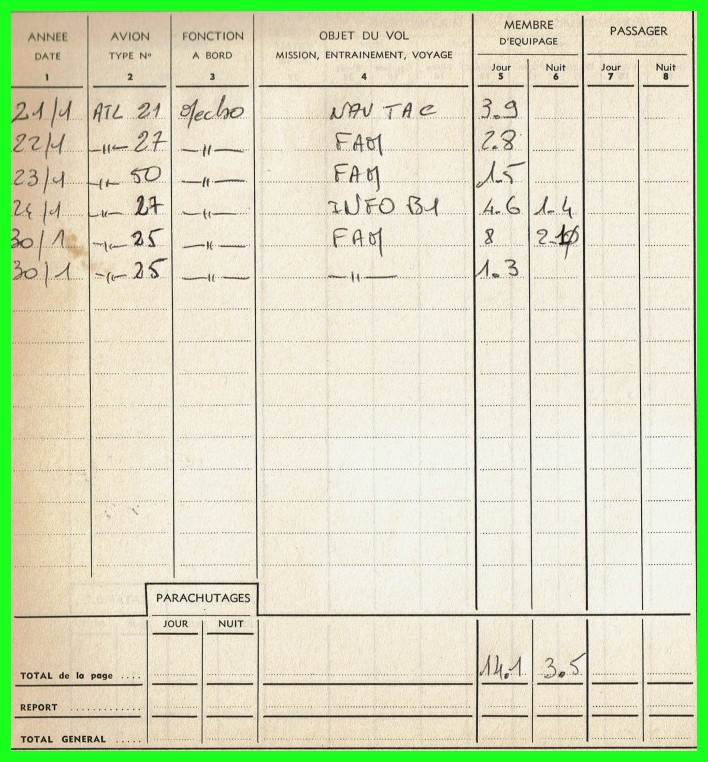 ANNEE AVION FONCTION OBJET DU VOL MEMBRE D'EQUIPAGE PASSAGER
DATE TYPE N° A BORD MISSION, ENTRAINEMENT, VOYAGE Jour Nuit Jour Nuit
1 2 3 4 5 6 7 8
21/1 ATL 21 NAV TAC 3.9
22/1 -"- 27 -"- FAM 2.8
23/1 -"- 50 -"- FAM 1.5
24/1 -"- 27 -"- INFO B1 4.6 1.4
30/1 -"- 25 -"- FAM 8
30/1 -"- 25 -"- -"- 1.3
PARACHUTAGES
JOUR NUIT
TOTAL de la page .... 14.1 3.5
REPORT
TOTAL GENERAL .....